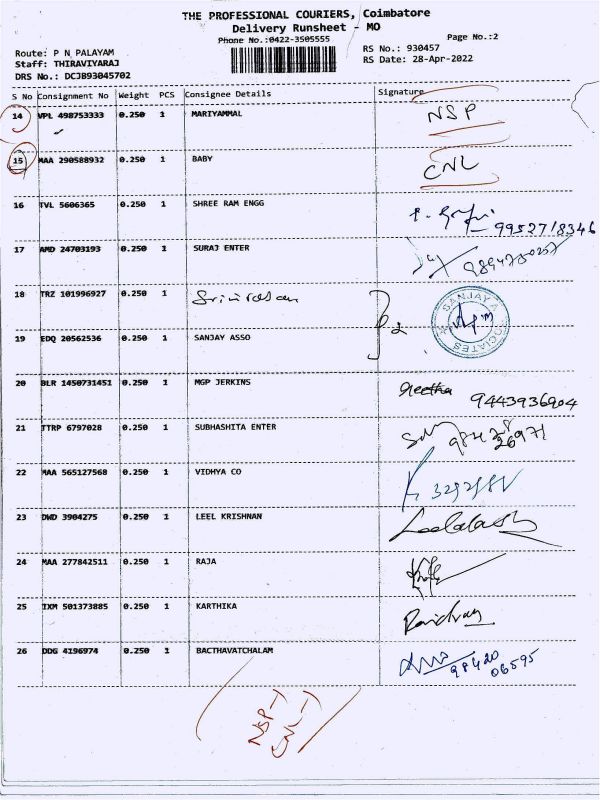 THE PROFESSIONAL COURIERS, Coimbatore
Delivery Runsheet - MO
Phone No.:0422-3505555
Page No.:2
Route: P N PALAYAM
RS No.: 930457
Staff: THIRAVIYARAJ
RS Date: 28-Apr-2022
DRS No.: DCJB93045702
S No Consignment No Weight PCS Consignee Details Signature
14 VPL 498753333 0.250 1 MARIYAMMAL NSP
15 MAA 290588932 0.250 1 BABY CNL
16 TVL 5606365 0.250 1 SHREE RAM ENGG 9952718346
17 AMD 24703193 0.250 1 SURAJ ENTER
18 TRZ 101996927 0.250 1 Srinivasan
SANJAYA ASSOCIATES
19 EDQ 20562536 0.250 1 SANJAY ASSO
20 BLR 1450731451 0.250 1 MGP JERKINS Geetha 9443936904
21 TTRP 6797028 0.250 1 SUBHASHITA ENTER
22 MAA 565127568 0.250 1 VIDHYA CO
23 DWD 3904275 0.250 1 LEEL KRISHNAN
24 MAA 277842511 0.250 1 RAJA
25 IXM 501373885 0.250 1 KARTHIKA
26 DDG 4196974 0.250 1 BACTHAVATCHALAM 98420
06595
NSP-1
CNL-1